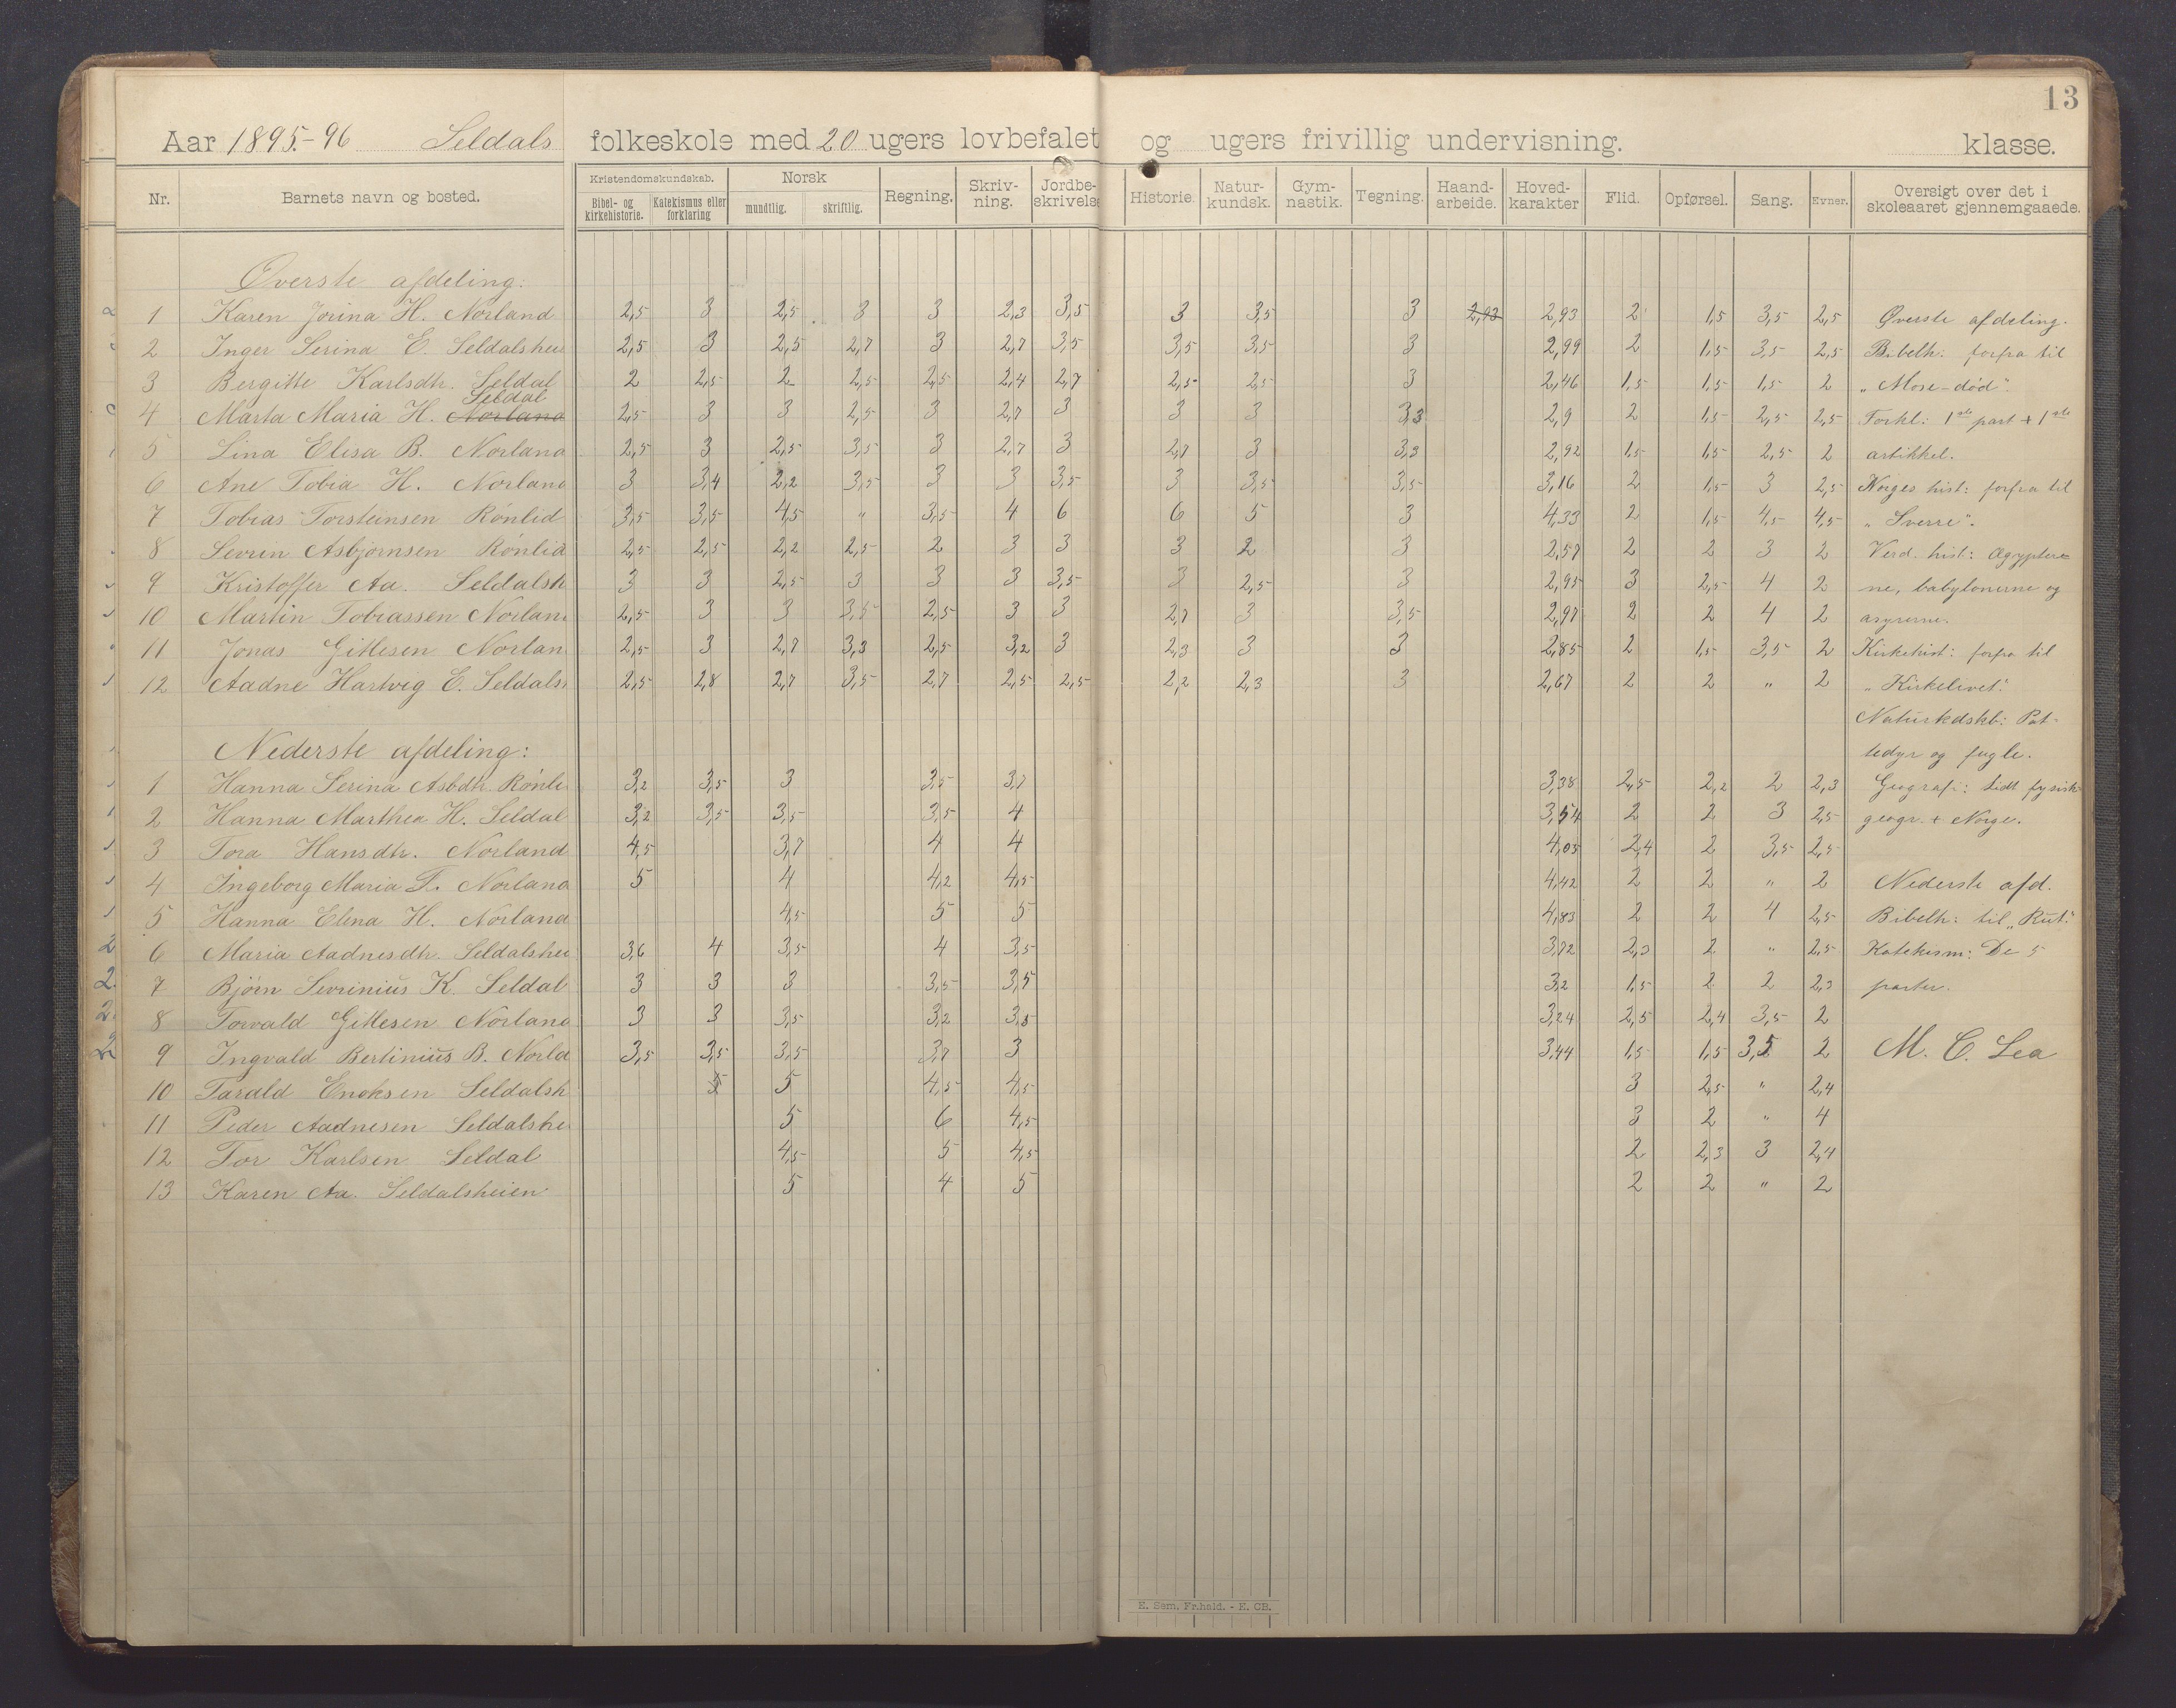 13
Aar 1895-96 Seldals folkeskole med 20 ugers lovbefalet og ugers frivillig undervisning. klasse.
Nr. Barnets navn og bosted. Kristendomskundskab. Bibel- og kirkehistorie. Katekismus eller forklaring Norsk mundtlig. skriftlig. Regning. Skriv-ning. Jordbe-skrivelse Historie. Natur-kundsk. Gym-nastik. Tegning. Haand-arbeide. Hoved-karakter Flid. Opførsel. Sang. Evner. Oversigt over det i skoleaaret gjennemgaaede.
Øverste afdeling:
1 Karen Jorina H. Norland 2,5 3 2,5 3 3 2,3 3,5 3 3,5 3 2,93 2,93 2 1,5 3,5 2,5 Øverste afdeling.
2 Inger Serina E. Seldalshei 2,5 3 2,5 2,7 3 2,7 3,5 3,5 3,5 3 2,99 2 1,5 3,5 2,5 Bibelh. forfra til
3 Bergitte Karlsdtr. Seldal 2 2,5 2 2,5 2,5 2,4 2,7 2,5 2,5 3 2,46 1,5 1,5 1,5 2 "Mose-død".
Seldal
4 Marta Maria H. Norland 2,5 3 3 2,5 3 2,7 3 3 3 3,3 2,9 2 1,5 2,5 2,5 Forkl: 1ste part + 1ste
5 Lina Elisa B. Norland 2,5 3 2,5 3,5 3 2,7 3 2,7 3 3,3 2,92 1,5 1,5 2,5 2 artikkel.
6 Ane Tobia H. Norland 3 3,4 2,2 3,5 3 3 3,5 3 3,5 3,5 3,16 2 1,5 3 2,5 Norges hist: forfra til
7 Tobias Torsteinsen Rønlid 3,5 3,5 4,5 " 3,5 4 6 6 5 3 4,33 2 1,5 4,5 4,5 "Sverre".
8 Sevrin Asbjørnsen Rønlid 2,5 2,5 2,2 2,5 2 3 3 3 2 3 2,57 2 2 3 2 Verd. hist: Ægypter-
9 Kristoffer Aa. Seldalsh 3 3 2,5 3 3 3 3,5 3 2,5 3 2,95 3 2,5 4 2 ne, babylonerne og
10 Martin Tobiassen Norlan 2,5 3 3 3,5 2,5 3 3 2,7 3 3,5 2,97 2 2 4 2 asyrerne.
11 Jonas Gitlesen Norlan 2,5 3 2,7 3,3 2,5 3,2 3 2,3 3 3 2,85 2 1,5 3,5 2 Kirkehist: forfra til
12 Aadne Hartvig E. Seldals 2,5 2,8 2,7 3,5 2,7 2,5 2,5 2,2 2,3 3 2,67 2 2 " 2 "Kirkelivet".
Naturkdskb: Pat-
Nederste afdeling: tedyr og fugle.
1 Hanna Serina Asbdtr. Rønli 3,2 3,5 3 3,5 3,7 3,38 2,5 2,2 2 2,3 Geografi: Lidt fysisk
2 Hanna Marthea H. Seldal 3,2 3,5 3,5 3,5 4 3,54 2 2 3 2,5 geogr. + Norge.
3 Tora Hansdtr. Norland 4,5 3,7 4 4 4,05 2,4 2 3,5 2,5
4 Ingeborg Maria T. Norland 5 4 4,2 4,5 4,42 2 2 " 2 Nederste afd.
5 Hanna Elena H. Norland 4,5 5 5 4,83 2 2 4 2,5 Bibelh: til "Rut".
6 Maria Aadnesdtr. Seldalshei 3,6 4 3,5 4 3,5 3,72 2,3 2 " 2,5 Katekism: De 5
7 Bjørn Sevrinius K. Seldal 3 3 3 3,5 3,5 3,2 1,5 2 2 2,3 parter.
8 Torvald Gitlesen Norland 3 3 3,5 3,2 3,5 3,24 2,5 2,4 3,5 2
9 Ingvald Bertinius B. Norld 3,5 3,5 3,5 3,7 3 3,44 1,5 1,5 3,5 2 M. C. Lea
10 Tarald Enoksen Seldalsh 5 5 4,5 4,5 3 2,5 " 2,4
11 Peder Aadnesen Seldalshe 5 6 4,5 3 2 " 4
12 Tor Karlsen Seldal 4,5 5 4,5 2 2,3 3 2,4
13 Karen Aa. Seldalsheien 5 4 5 2 2 " 2
E. Sem, Fr.hald. - E. CB.